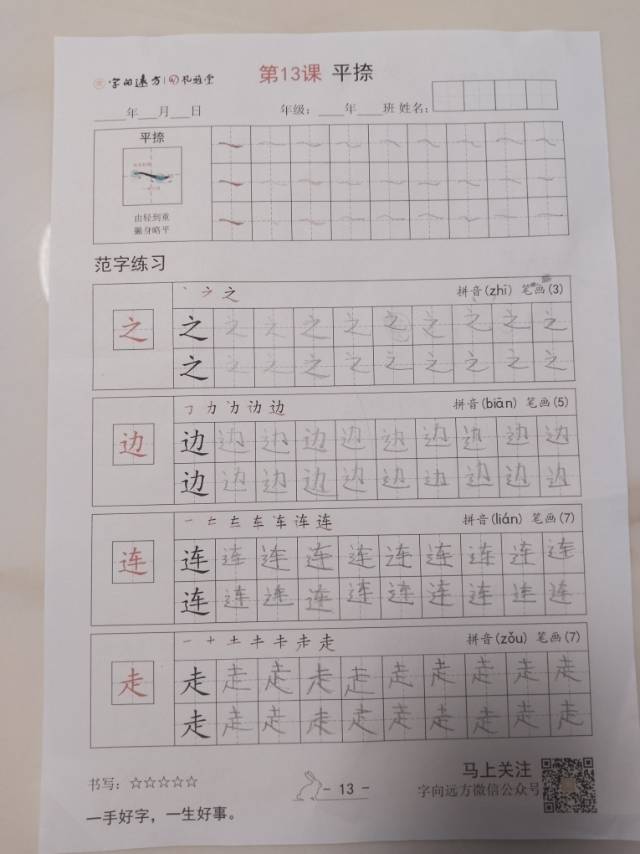 字向远方 礼雅堂
第13课 平捺
____年___月___日 年级：____年____班 姓名：
平捺
由轻到重
捺身略平
范字练习
丶 ㇇ 之 拼音(zhī) 笔画(3)
之 之 之 之 之 之 之 之 之 之 之
之 之 之 之 之 之 之 之 之 之
㇆ 力 边 拼音(biān) 笔画(5)
边 边 边 边 边 边 边 边 边 边 边
边 边 边 边 边 边 边 边 边 边
一 车 连 拼音(lián) 笔画(7)
连 连 连 连 连 连 连 连 连 连 连
连 连 连 连 连 连 连 连 连 连
一 十 土 走 拼音(zǒu) 笔画(7)
走 走 走 走 走 走 走 走 走 走 走
走 走 走 走 走 走 走 走 走 走
书写：☆☆☆☆☆ - 13 - 马上关注
字向远方微信公众号
一手好字，一生好事。